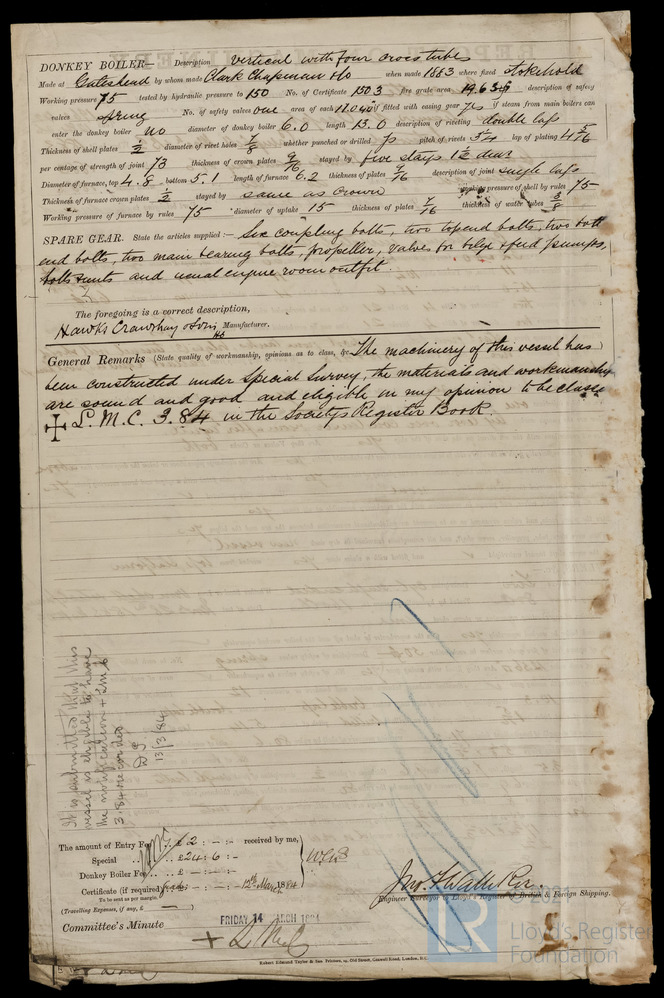 DONKEY BOILER— Description vertical with four cross tubes
Made at Gateshead by whom made Clark Chapman & Co when made 1883 where fixed Stokehold
Working pressure 75 tested by hydraulic pressure to 150 No. of Certificate 1503 fire grate area 19.63 description of safety
valves Spring No. of safety valves one area of each 11.04 if fitted with easing gear yes if steam from main boilers can
enter the donkey boiler no diameter of donkey boiler 6.0 length 13.0 description of riveting double laps
Thickness of shell plates 1/2 diameter of rivet holes 7/8 whether punched or drilled p pitch of rivets 3 1/4 lap of plating 4 5/16
per centage of strength of joint 73 thickness of crown plates 9/16 stayed by five stays 1 1/2 diar
Diameter of furnace, top 4.8 bottom 5.1 length of furnace 6.2 thickness of plates 7/16 description of joint single laps
Thickness of furnace crown plates 1/2 stayed by same as crown working pressure of shell by rules 75
Working pressure of furnace by rules 75 diameter of uptake 15 thickness of plates 7/16 thickness of water tubes 3/8
SPARE GEAR. State the articles supplied:— Six coupling bolts, two top end bolts, two bott
end bolts, two main bearing bolts, propeller, valves for bilge & feed pumps,
bolts & nuts and usual engine room outfit.
The foregoing is a correct description,
Hawks Crawshay & Sons Manufacturer.
General Remarks (State quality of workmanship, opinions as to class, &c. The machinery of this vessel has
been constructed under Special Survey, the materials and workmanship
are sound and good and eligible in my opinion to be classed
L. M. C. 3.84 in the Society's Register Book.
It is submitted that this
vessel is eligible to have
the notification + LMC
3.84 recorded
13/3/84
The amount of Entry Fee .. £ 2 : - : - received by me,
Special .. £24 : 6 : -
Donkey Boiler Fee .. £ - : - : -
Certificate (if required) : - : - 12th March 1884
To be sent as per margin.
(Travelling Expenses, if any, £ — )
Engineer Surveyor to Lloyd's Register of British & Foreign Shipping.
Committee's Minute
FRIDAY 14 MARCH 1884
+ L M C
Robert Edmund Taylor & Son, Printers, 19, Old Street, Goswell Road, London, E.C.
© 2021
LR
Lloyd's Register
Foundation